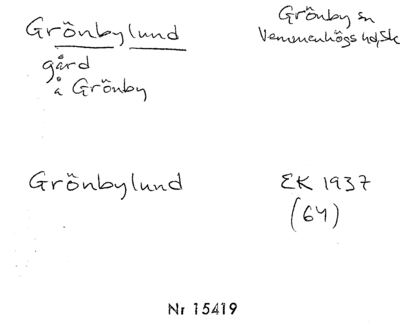 Grönbylund
Grönby sn
Vemmenhögs hd, Sk
gård
å Grönby
Grönbylund
EK 1937
(64)
Nr 15419